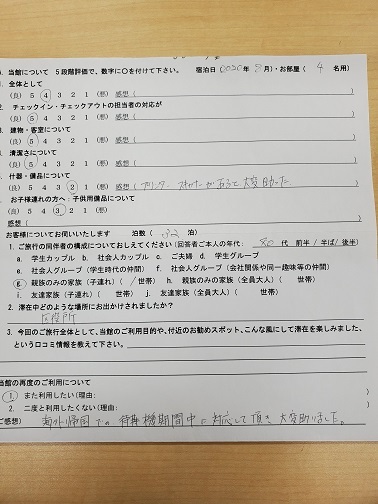 当館について 5段階評価で、数字に○を付けて下さい。 宿泊日 2020年 9月)・お部屋( 4 名用)
全体として
(良) 5 4 3 2 1 (悪) 感想( )
2. チェックイン・チェックアウトの担当者の対応が
(良) 5 4 3 2 1 (悪) 感想( )
建物・客室について
(良) 5 4 3 2 1 (悪) 感想( )
清潔さについて
(良) 5 4 3 2 1 (悪) 感想( )
什器・備品について
(良) 5 4 3 2 1 (悪) 感想( プリンター スキャナーがあって大変助った )
お子様連れの方へ：子供用備品について
(良) 5 4 3 2 1 (悪)
感想( )
お客様についてお伺いいたします 泊数( 泊)
1. ご旅行の同伴者の構成についておしえてください(回答者ご本人の年代： 代 前半/半ば/後半)
a. 学生カップル b. 社会人カップル c. ご夫婦 d. 学生グループ
e. 社会人グループ(学生時代の仲間) f. 社会人グループ(会社関係や同一趣味等の仲間)
g. 親族のみの家族(子連れ)( 1 世帯) h. 親族のみの家族(全員大人)( 世帯)
i. 友達家族(子連れ)( 世帯) j. 友達家族(全員大人)( 世帯)
2. 滞在中どのような場所にお出かけされましたか？
区役所
3. 今回のご旅行全体として、当館のご利用目的や、付近のお勧めスポット、こんな風にして滞在を楽しみました、
という口コミ情報を教えて下さい。
当館の再度のご利用について
1. また利用したい(理由:
2. 二度と利用したくない(理由:
ご感想) 海外帰国での待機期間中に対応して頂き大変助りました。